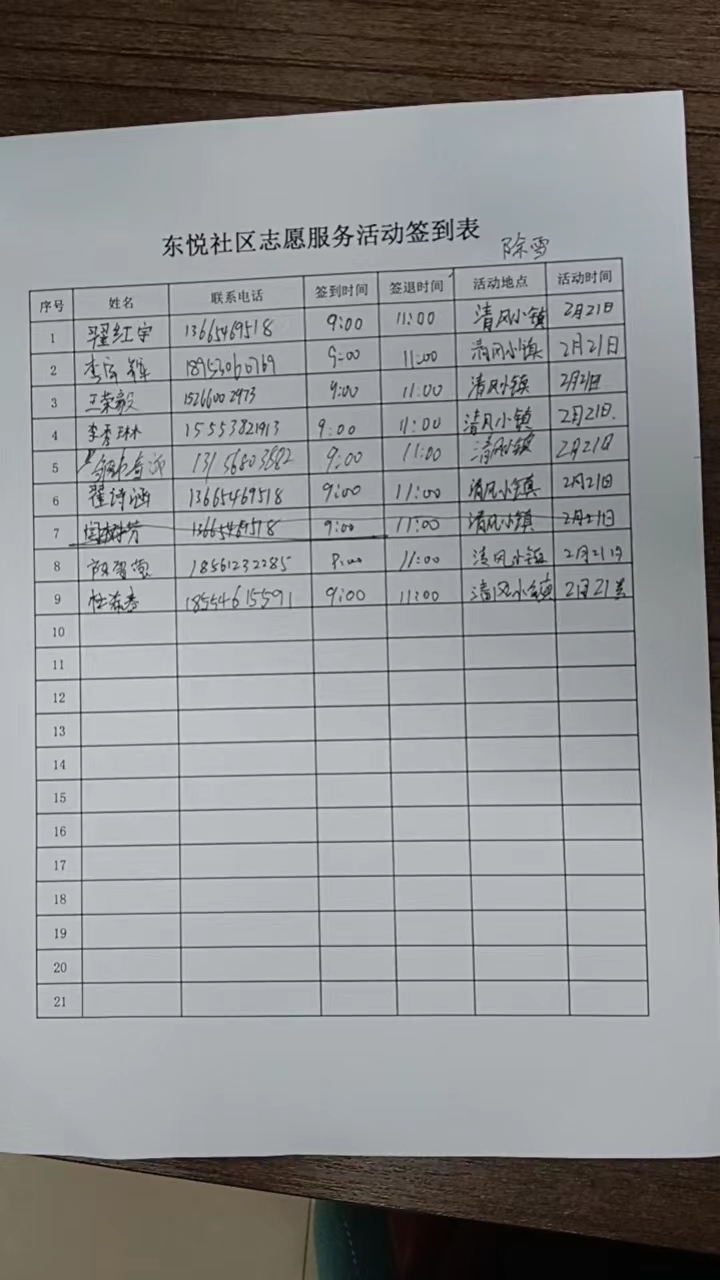 东悦社区志愿服务活动签到表 除雪
序号 姓名 联系电话 签到时间 签退时间 活动地点 活动时间
1 翟红宇 13665469518 9:00 11:00 清风小镇 2月21日
2 李 辉 18953060769 9:00 11:00 清风小镇 2月21日
3 王荣毅 15266002973 9:00 11:00 清风小镇 2月21日
4 李秀琳 15553821913 9:00 11:00 清风小镇 2月21日.
5 13156803882 9:00 11:00 清风小镇 2月21日
6 翟诗涵 13665469518 9:00 11:00 清风小镇 2月21日
7 闫树芳 13665469518 9:00 11:00 清风小镇 2月21日
8 18561232285 11:00 清风小镇 2月21日
9 杜 18554615591 9:00 11:00 清风小镇 2月21
10
11
12
13
14
15
16
17
18
19
20
21